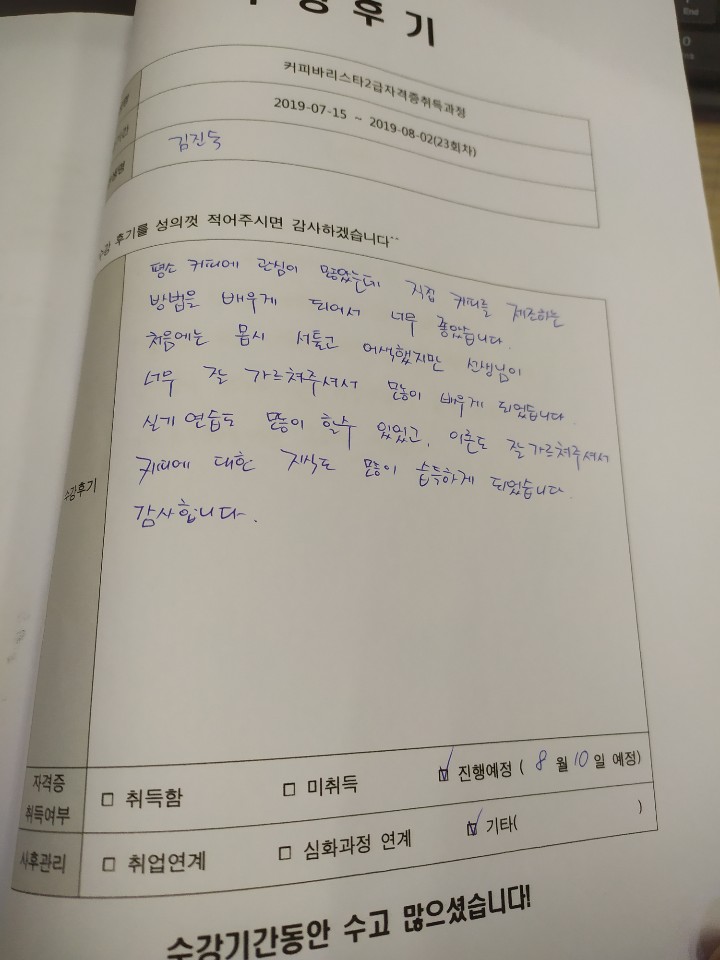 강 후 기
커피바리스타2급자격증취득과정
2019-07-15 ~ 2019-08-02(23회차)
김진숙
수강 후기를 성의껏 적어주시면 감사하겠습니다^^
평소 커피에 관심이 많았는데 직접 커피를 제조하는
방법을 배우게 되어서 너무 좋았습니다.
처음에는 몹시 서툴고 어색했지만 선생님이
너무 잘 가르쳐주셔서 많이 배우게 되었습니다.
실기 연습도 많이 할수 있었고, 이론도 잘 가르쳐주셔서
커피에 대한 지식도 많이 습득하게 되었습니다.
감사합니다.
수강후기
자격증
취득여부
□ 취득함 □ 미취득 ☑ 진행예정 ( 8 월 10 일 예정)
사후관리 □ 취업연계 □ 심화과정 연계 ☑ 기타( )
수강기간동안 수고 많으셨습니다!
End